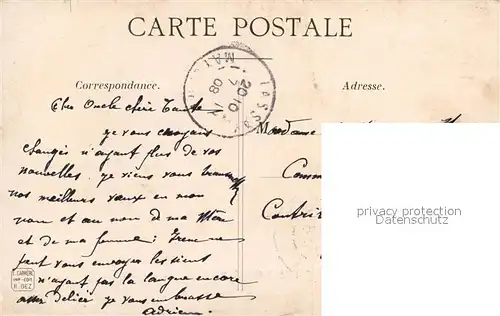 CARTE POSTALE
Correspondance.
Adresse.
Cher Oncle chère Tante
je vous croyais
changés n'ayant plus de vos
nouvelles. je viens vous
nos meilleurs vœux en mon
nom et au nom de ma Mère
et de ma femme; Irène ne
peut vous envoyer les siens
n'ayant pas la langue encore
assez déliée je vous embrasse
Adrien.
20 10
7 - 1
08
Madame
Comm
Contri
privacy protection
watermark
L. CARMON
IMP - EDIT
R. DEZ